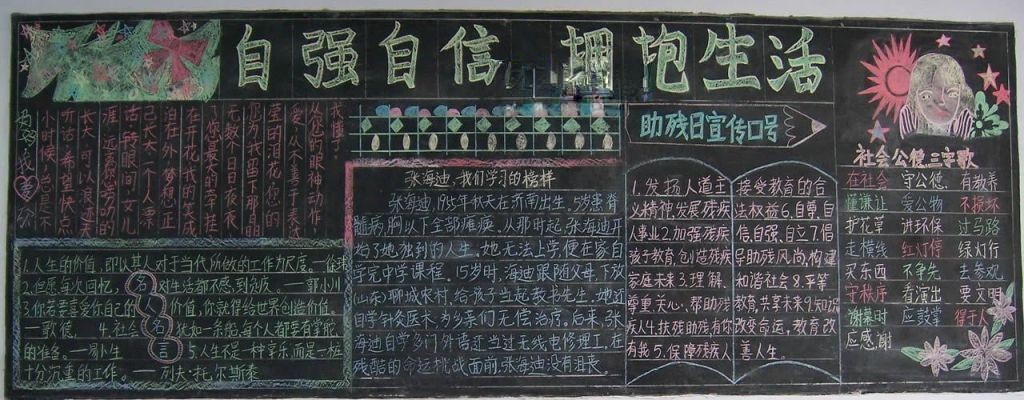 自强自信 拥抱生活
我懂
爱，从不善于表达
从您的眼神、动作、
莹的泪花你您的
您为我留下那晶
无数个日日夜夜
你最美的字挂
在开花我的笑成
泊在外梦想正
己长大一个人漂
话转眼间女儿
长大可以浪迹天
听话希望快点
小时候总是不
名人名言
1.人生的价值，即以其人对于当代所做的工作为尺度。—徐玮
2.但愿每次回忆，对生活都不感到负疚。—郭小川
3.你若要喜爱你自己的价值，你就得给世界创造价值。
—歌德 4.社会犹如一条船，每个人都要有掌舵
的准备。—易卜生 5.人生不是一种享乐，而是一桩
十分沉重的工作。——列夫·托尔斯泰
张海迪，我们学习的榜样
张海迪，1955年秋天在济南出生，5岁患脊
髓病，胸以下全部瘫痪。从那时起，张海迪开
始了她独到的人生。她无法上学，便在家自
学完中学课程。15岁时，海迪跟随父母下放
(山东)聊城农村，给孩子当起教书先生。她还
自学针灸医术，为乡亲们无偿治疗。后来，张
海迪自学多门外语，还当过无线电修理工。在
残酷的命运挑战面前，张海迪没有沮丧。
助残日宣传口号
1.发扬人道主
义精神，发展残疾
人事业2.加强残疾
孩子教育，创造残疾
家庭未来3.理解、
尊重、关心、帮助残
疾人4.扶残助残，有你
有我5.保障残疾人
接受教育的合
法权益6.自尊，自
信，自强，自立7.倡
导助残风尚，构建
和谐社会8.平等
教育，共享未来9.知识
改变命运，教育改
善人生。
社会公德三字歌
在社会 守公德，有教养
懂谦让 爱公物 不损坏
护花草 讲环保 过马路
走横线 红灯停 绿灯行
买东西 不争先 去参观
守秩序 看演出 要文明
谢幕时 应鼓掌 得于人
应感谢